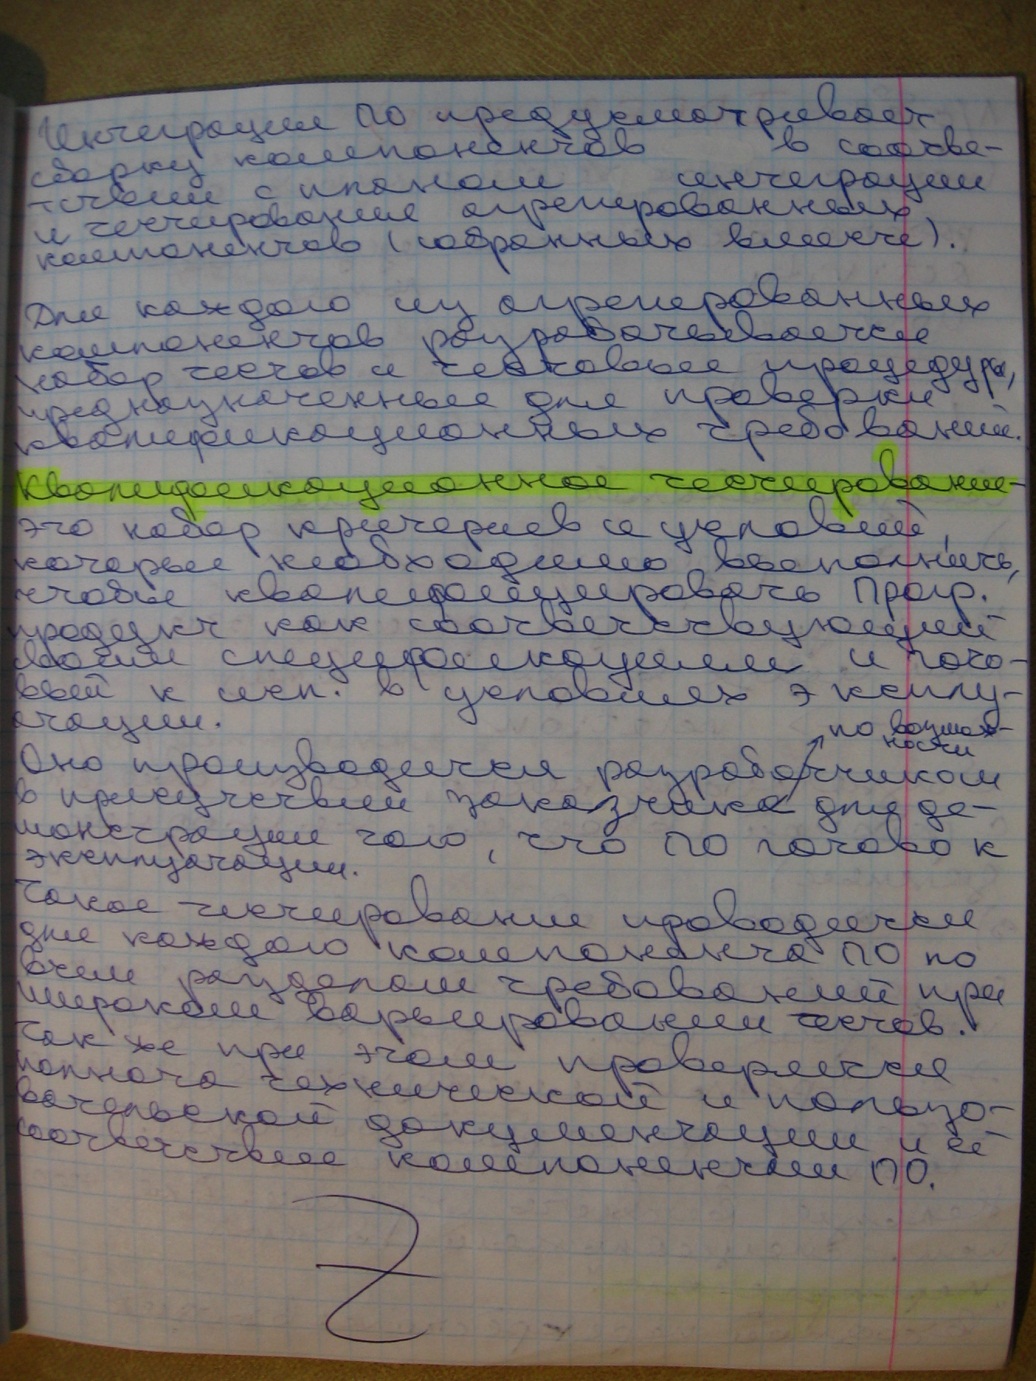 Интеграция ПО предусматривает
сборку компонентов в соотве-
тствии с планом интеграции
и тестирование агрегированных
компонентов (собранных вместе).
Для каждого из агрегированных
компонентов разрабатывается
набор тестов и тестовые процедуры,
предназначенные для проверки
квалификационных требований.
Квалификационное тестирование-
это набор критериев и условий,
которые необходимо выполнить,
чтобы квалифицировать Прогр.
продукт как соответствующий
своим спецификациям и гото-
вый к исп. в условиях эксплу-
атации.
по возмож-
ности
Оно производится разработчиком
в присутствии заказчика для де-
монстрации того, что ПО готово к
эксплуатации.
Такое тестирование проводится
для каждого компонента ПО по
всем разделам требований при
широком варьировании тестов.
Так же при этом проверяется
полнота технической и пользо-
вательской документации и её
соответствие компонентам ПО.